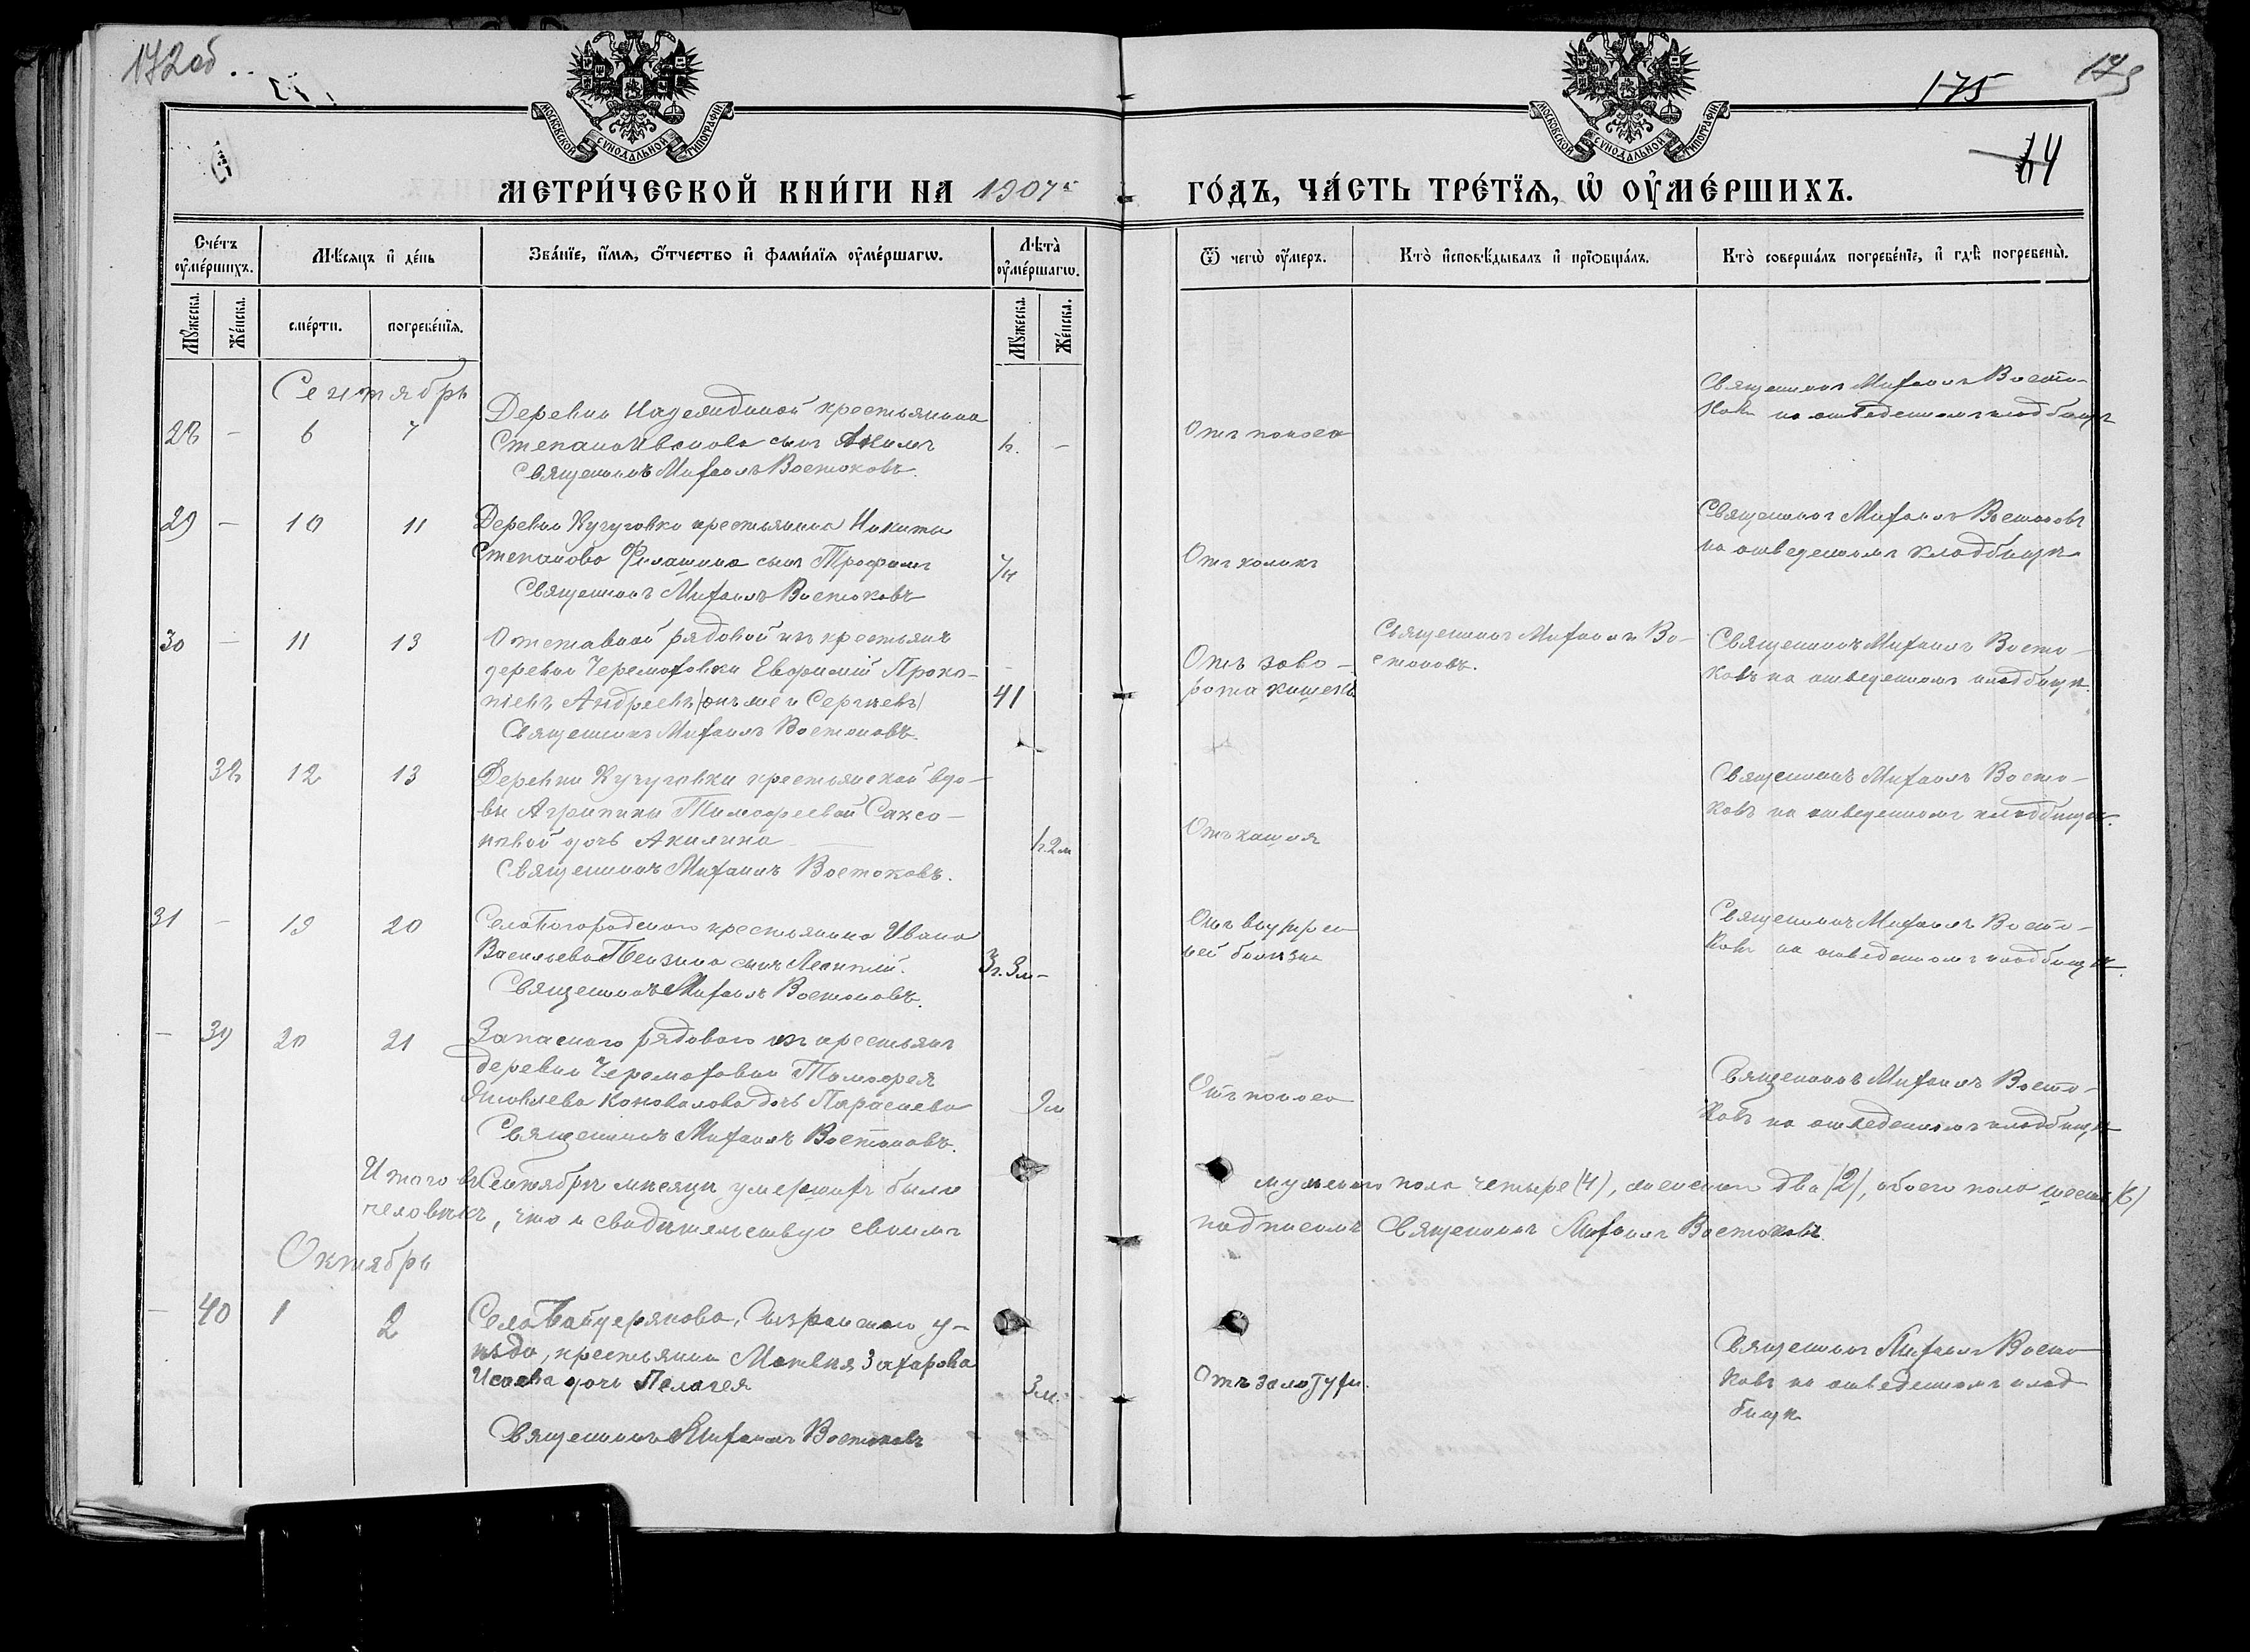 172об
175
173
64
МОСКОВСКОЙ СУНОДАЛЬНОЙ ТИПОГРАФІИ
МОСКОВСКОЙ СУНОДАЛЬНОЙ ТИПОГРАФІИ
МЕТРИ́ЧЕСКОЙ КНИ́ГИ НА 1907
ГО́ДЪ, ЧА́СТЬ ТРЕ́ТЇЯ, Ѡ ОУ҆МЕ́РШИХЪ.
Сче́тъ оу҆ме́ршихъ.
Мѣ́сяцъ и҆ де́нь
Зва́нїе, и҆́мя, ѻ҆́тчество и҆ фами́лїя оу҆ме́ршагѡ.
Лѣта̀ оу҆ме́ршагѡ.
Ѿ чегѡ̀ оу҆́меръ.
Кто̀ и҆сповѣ́дывалъ и҆ прїѡбща́лъ.
Кто̀ соверша́лъ погребе́нїе, и҆ гдѣ̀ погребены̀.
Му́жеска. Же́нска.
сме́рти. погребе́нїя.
Му́жеска. Же́нска.
Сентябрь
28 - 6 7
Деревни крестьянина
Степана Иванова сынъ Акимъ
Священникъ Михаилъ Востоковъ.
-
Отъ поноса
Священникъ Михаилъ Восто-
ковъ на отведенномъ кладбищѣ
29 - 10 11
Деревни Кучуговки крестьянина Никиты
Степанова Филашина сынъ Трофимъ
Священникъ Михаилъ Востоковъ
Отъ коликъ
Священникъ Михаилъ Востоковъ
на отведенномъ кладбищѣ
30 - 11 13
Отставной рядовой изъ крестьянъ
деревни Черемховки Евфимій Проко-
піевъ Андреевъ (онъ же и Сергѣевъ)
Священникъ Михаилъ Востоковъ.
41
Отъ заво-
рота кишекъ
Священникъ Михаилъ Во-
стоковъ.
Священникъ Михаилъ Восто-
ковъ на отведенномъ кладбищѣ.
38 12 13
Деревни Кучуговки крестьянской вдо-
вы Агрипины Тимофеевой Саксо-
новой дочь Акилина
Священникъ Михаилъ Востоковъ.
1г.2м
Отъ кашля
Священникъ Михаилъ Восто-
ковъ на отведенномъ кладбищѣ.
31 - 19 20
Села Богородскаго крестьянина Ивана
Васильева сынъ Леонтій.
Священникъ Михаилъ Востоковъ.
3г.3м -
Отъ внутрен
ней болѣзни
Священникъ Михаилъ Восто-
ковъ на отведенномъ кладбищѣ.
- 39 20 21
Запаснаго рядового изъ крестьянъ
деревни Черемховки Тимофея
Яковлева Коновалова дочь Параскева
Священникъ Михаилъ Востоковъ.
9м
Отъ поноса
Священникъ Михаилъ Восто-
ковъ на отведенномъ кладбищѣ
Итого въ Сентябрѣ мѣсяцѣ умершихъ было мужского пола четыре (4), женскаго два (2), обоего пола шесть (6)
человѣкъ, что и свидѣтельствую своимъ подписомъ Священникъ Михаилъ Востоковъ.
Октябрь
- 40 1 2
Села Байдерякова, Сызранскаго у-
ѣзда, крестьянина Матвея Захарова
Исаева дочь Пелагея
Священникъ Михаилъ Востоковъ
3м.
Отъ золотухи.
Священникъ Михаилъ Восто
ковъ на отведенномъ клад
бищѣ